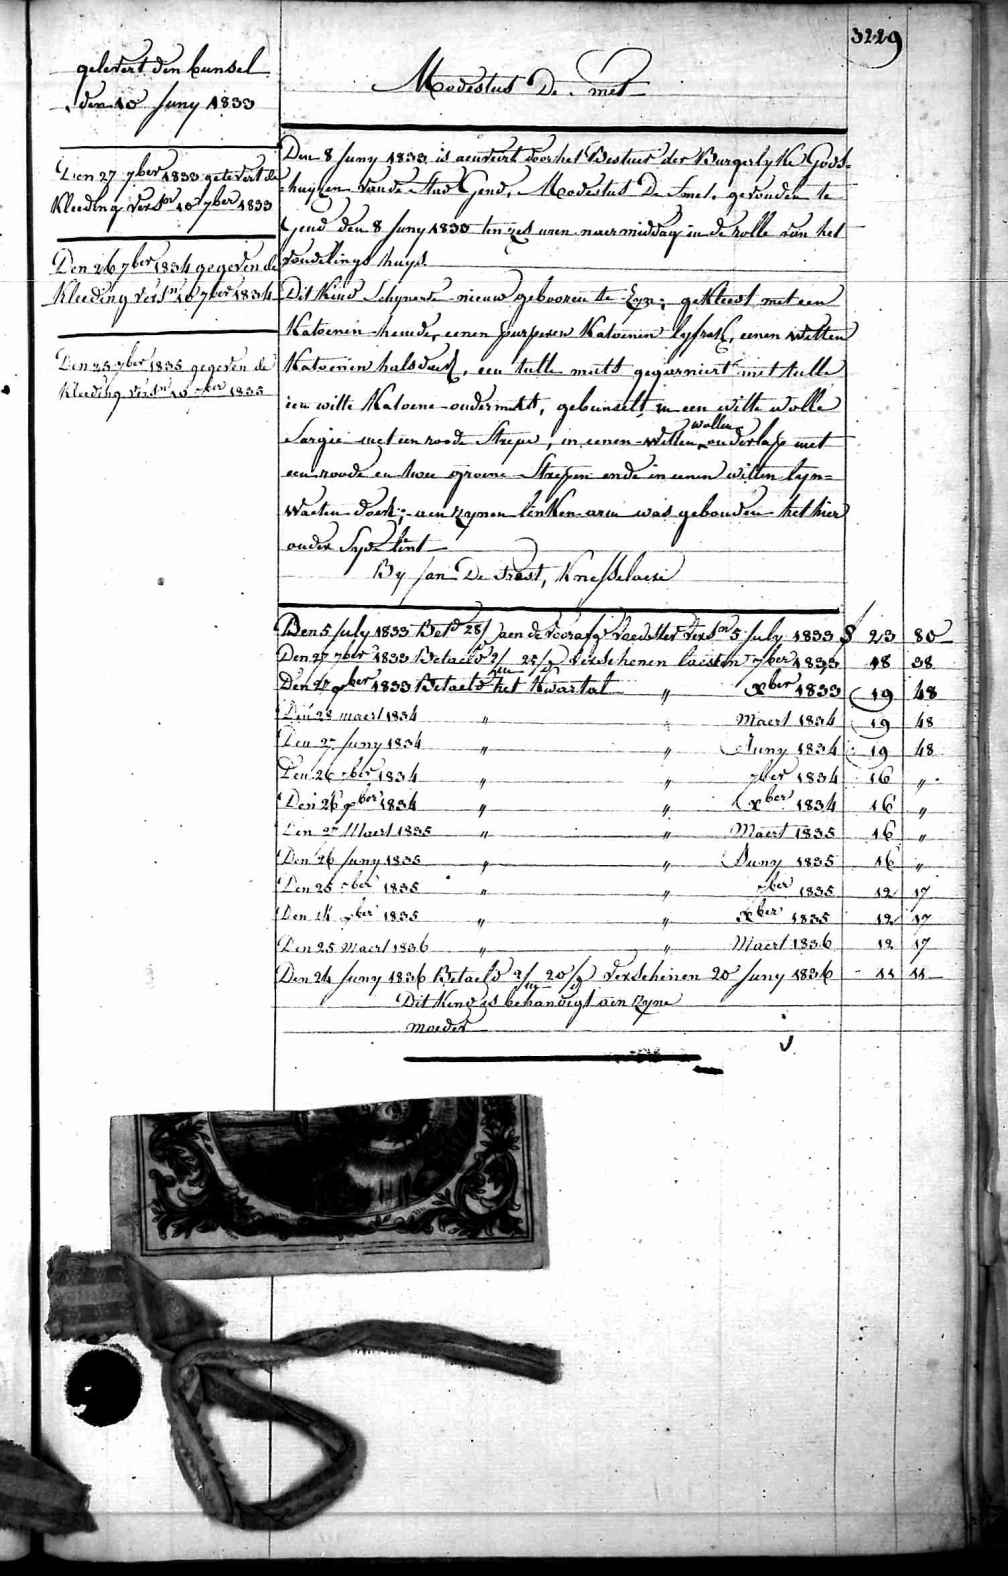 3229
gelevert den bunsel
den 10 Juny 1833
Den 27 7ber 1833 gelevert de
Kleeding versn 10 7ber 1833
Den 26 7ber 1834 gegeven de
Kleeding versn 10 7ber 1834
Den 25 7ber 1835 gegeven de
Kleeding versn 10 7ber 1835
Modestus De Smet
Den 8 Juny 1833 is aenveirt door het Bestuer der Burgerlyke Gods=
huyzen van de Stad Gend, Modestus De Smet. gevonden te
Gend den 8 Juny 1833 ten zes uren naermiddag in de rolle van het
vondelings huys.
Dit Kind Schynende nieuw gebooren te Zyn; gekleed met een
Katoenen hemde, eenen purperen Katoenen lyfrok, eenen witten
Katoenen halsdoek, een tulle muts gegarniert met tulle
een witte Katoene ondermuts, gebunselt in een witte wolle
Sargie met een roode Strepe, in eenen witten wollen onderlap met
een roode en twee groene Strepen ende in eenen witten lyn=
waeten doek; aen zynen linken arm was gebonden het hier
onder Syde lint
By Jan De Groot, Knesselaere
Den 5 July 1833 Betd 28/ aen de voorafg Voedster versn 5 July 1833 23 80
Den 27 7ber 1833 Betaeld 2/m 25/d verschenen laesten 7ber 1833 18 38
Den 27 xber 1833 Betaeld het Kwartael " xber 1833 19 48
Den 28 maert 1834 " " Maert 1834 19 48
Den 27 Juny 1834 " " Juny 1834 19 48
Den 26 7ber 1834 " " 7ber 1834 16 "
Den 26 xber 1834 " " xber 1834 16 "
Den 27 Maert 1835 " " Maert 1835 16 "
Den 26 Juny 1835 " " Juny 1835 16 "
Den 25 7ber 1835 " " 7ber 1835 12 17
Den 24 xber 1835 " " xber 1835 12 17
Den 25 Maert 1836 " " Maert 1836 12 17
Den 24 Juny 1836 Betaeld 2/m 20/d verschenen 20 Juny 1836 11 11
Dit Kind is behandigt aen Zyne
moeder